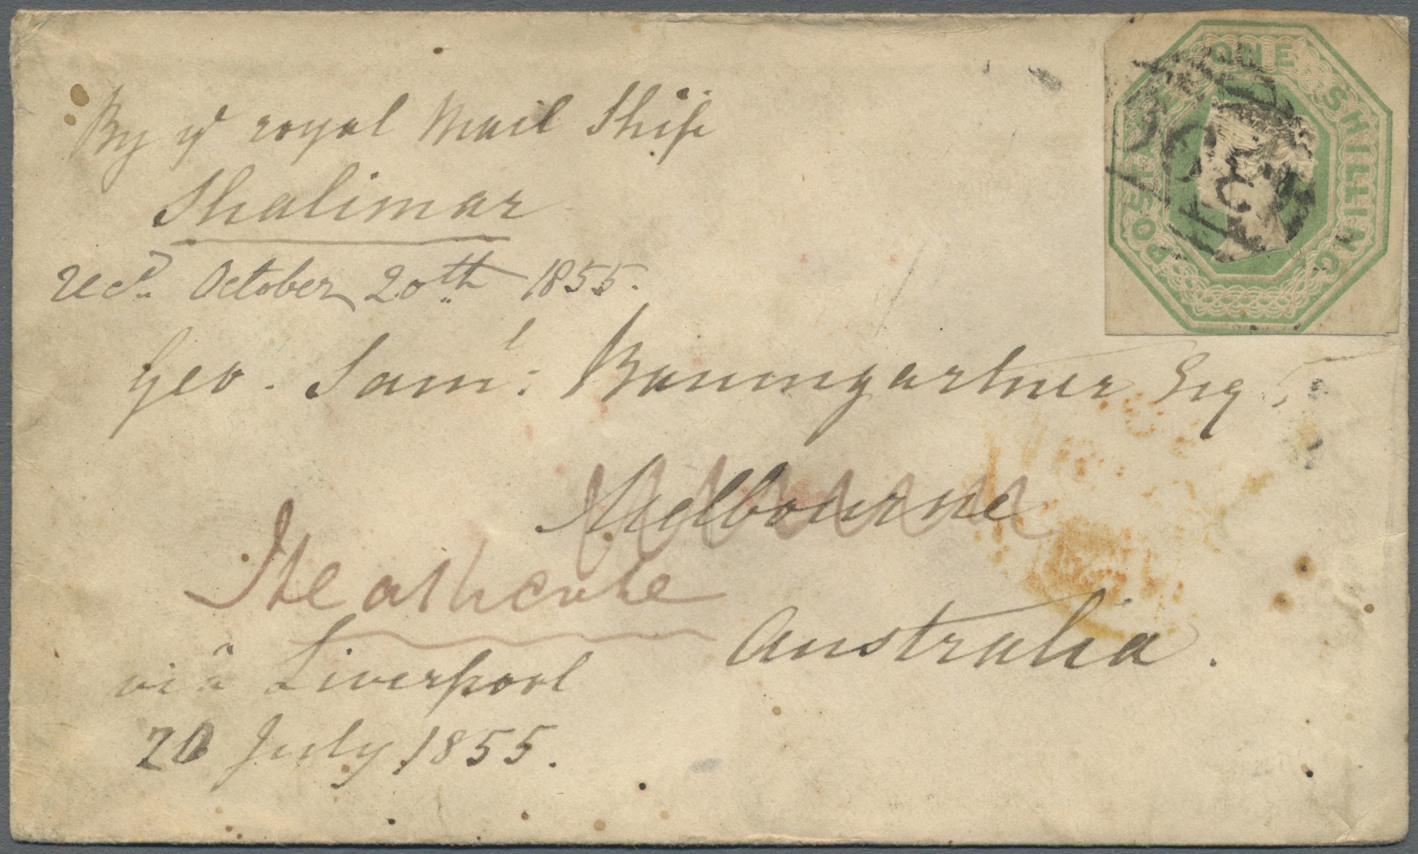 By yᵉ royal Mail Ship
Shalimar
recd. October 20th 1855.
Geo. Saml: Baumgartner Esq
Melbourne
Heathcote
Australia.
via Liverpool
20 July 1855.
POSTAGE ONE SHILLING